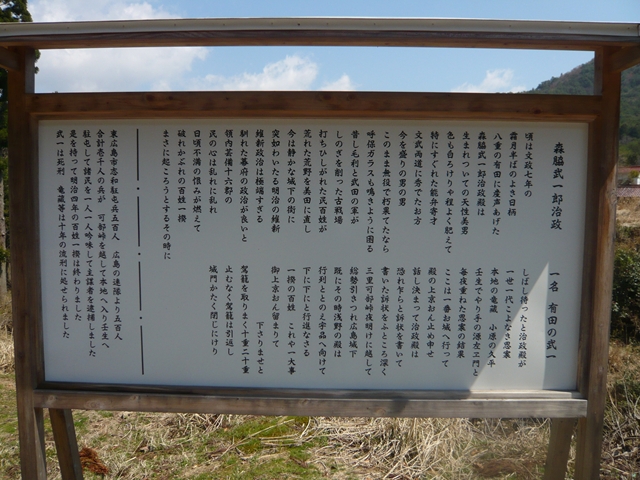 森脇武一郎治政　一名　有田の武一
頃は文政七年の
霜月半ばのよき日柄
八重の有田に産声あげた
森脇武一郎治政殿は
生まれついての天性美男
色も白ろけりや程よく肥えて
特にすぐれた能弁寄才
文武両道に秀でたお方
今を盛りの男の男
このまま無役で朽果てたなら
呼保ガラスも鳴きように困る
昔し毛利と武田の軍が
しのぎを削った古戦場
打ちひしがれた民百姓が
荒れた荒野を寿田に直し
今は静かな城下の街に
突如わいたる明治の維新
維新政治は極端すぎる
馴れた幕府の政治が良いと
領内芸備十六郡の
民の心は乱れに乱れ
日頃不満の恨みが燃えて
破れかぶれの百姓一揆
まさに起ころうとするその時に
しばし待ったと治政殿が
一世一代こよなき思案
本地の竜蔵　小原の久平
壬生でやり手の源左ヱ門と
毎夜重ねた思案の結果
ここは一番お城へ行って
殿の上京お止め申せ
話し決まって治政殿は
恐れ乍らと訴状を書いて
書いた訴状をふところ深く
三里可部峠夜明けに越して
総勢引きつれ広島城下
既にその時浅野の殿は
行列ととのえ宇品へ向けて
下に下にと行進なさる
一揆の百姓　これや一大事
御上京お留まりて
下さりませと
駕籠を取りまく十重二十重
止むなく駕籠は引返し
城門かたく閉じにけり
東広島市志和駐屯兵五百人　広島の連隊より五百人
合計壱千人の兵が　可部峠を越して本地へ入り壬生へ
駐屯して諸民を一人一人吟味して主謀者を逮捕しました
是を持って明治四年の百姓一揆は終わりました
武一は死刑　竜蔵等は十年の流刑に処せられました